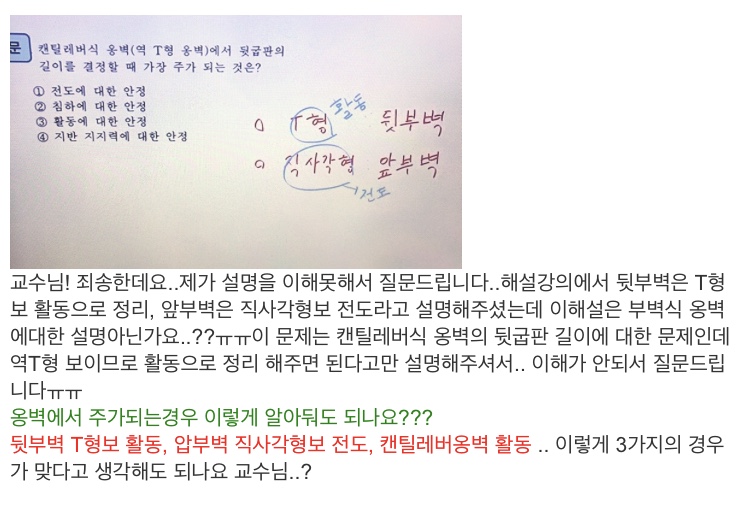 문 캔틸레버식 옹벽(역 T형 옹벽)에서 뒷굽판의
길이를 결정할 때 가장 주가 되는 것은?
① 전도에 대한 안정
② 침하에 대한 안정
③ 활동에 대한 안정
④ 지반 지지력에 대한 안정
활동
o T형 뒷부벽
o 직사각형 앞부벽
→전도
교수님! 죄송한데요..제가 설명을 이해못해서 질문드립니다..해설강의에서 뒷부벽은 T형
보 활동으로 정리, 앞부벽은 직사각형보 전도라고 설명해주셨는데 이해설은 부벽식 옹벽
에대한 설명아닌가요..??ㅠㅠ이 문제는 캔틸레버식 옹벽의 뒷굽판 길이에 대한 문제인데
역T형 보이므로 활동으로 정리 해주면 된다고만 설명해주셔서.. 이해가 안되서 질문드립
니다ㅠㅠ
옹벽에서 주가되는경우 이렇게 알아둬도 되나요???
뒷부벽 T형보 활동, 압부벽 직사각형보 전도, 캔틸레버옹벽 활동 .. 이렇게 3가지의 경우
가 맞다고 생각해도 되나요 교수님..?